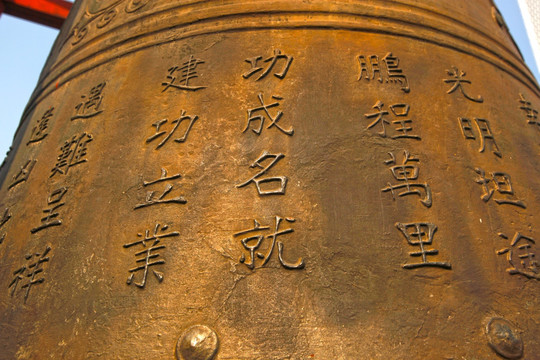 光明坦途
鵬程萬里
功成名就
建功立業
遇難呈祥